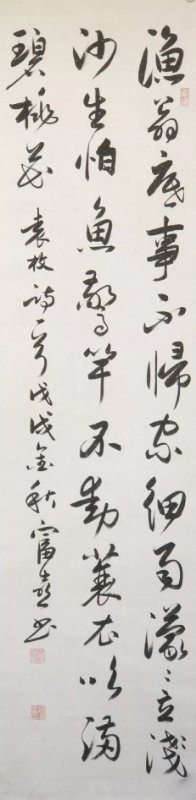 漁翁底事不歸家細雨濛〻立淺
沙生怕魚驚竿不動蓑衣吹滿
碧桃花
袁枚詩一首戊戌金秋富春書